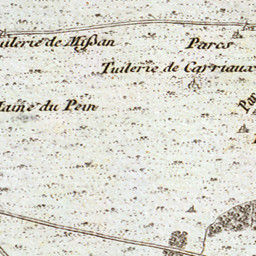 uilerie de Mißan
Parcs
Tuilerie de Carriaux
laine du Pein
Par